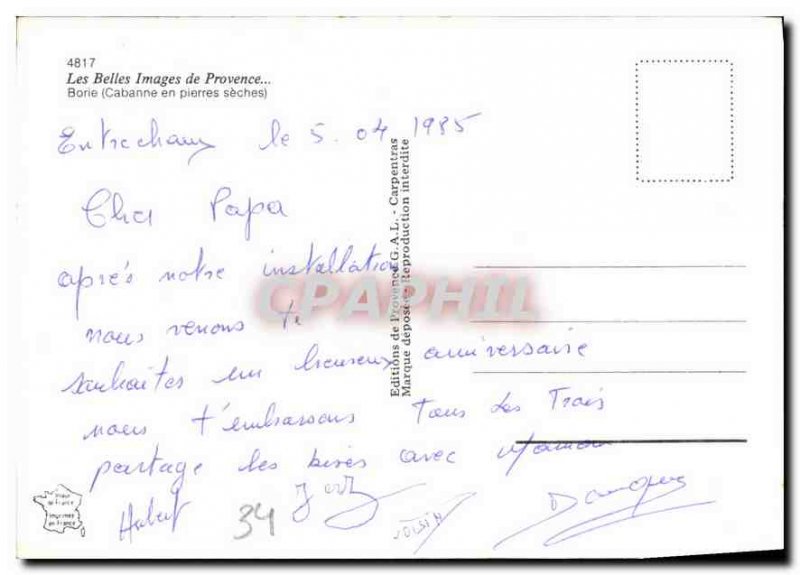 4817
Les Belles Images de Provence...
Borie (Cabanne en pierres sèches)
Entrechaux le 5.04 1985
Cher Papa
après notre installation
nous venons te
souhaiter un heureux anniversaire
nous t'embrassons Tous Les Trois
partage les bises avec Maman
Hubert
34
Editions de Provence G.A.L. - Carpentras
Marque déposée - Reproduction interdite
CPAPHIL